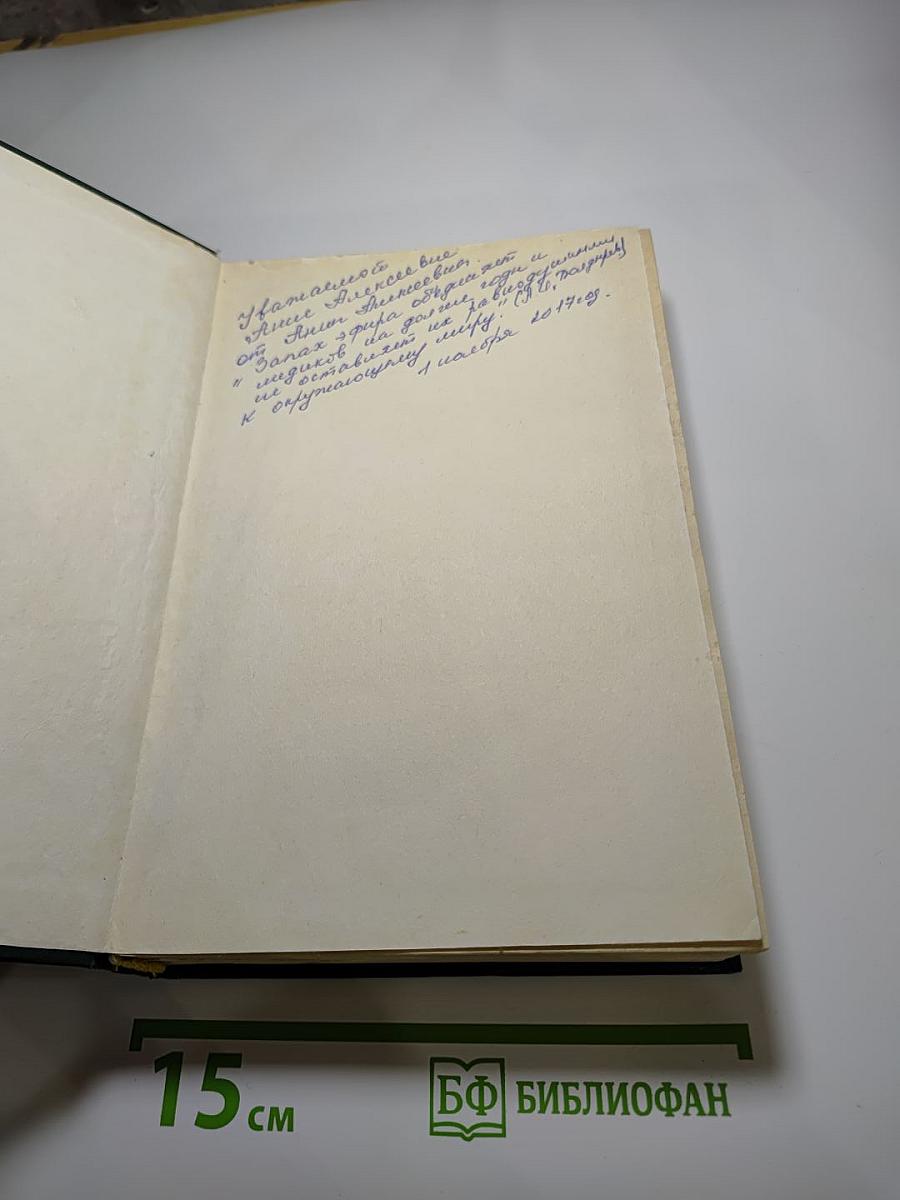 Уважаемой
Анне Алексеевне
от Анны Алексеевны.
"Запах эфира объединяет
медиков на долгие годы и
не оставляет их равнодушными
к окружающему миру." (А.И.
1 ноября 2017 г.
15 см
БФ БИБЛИОФАН